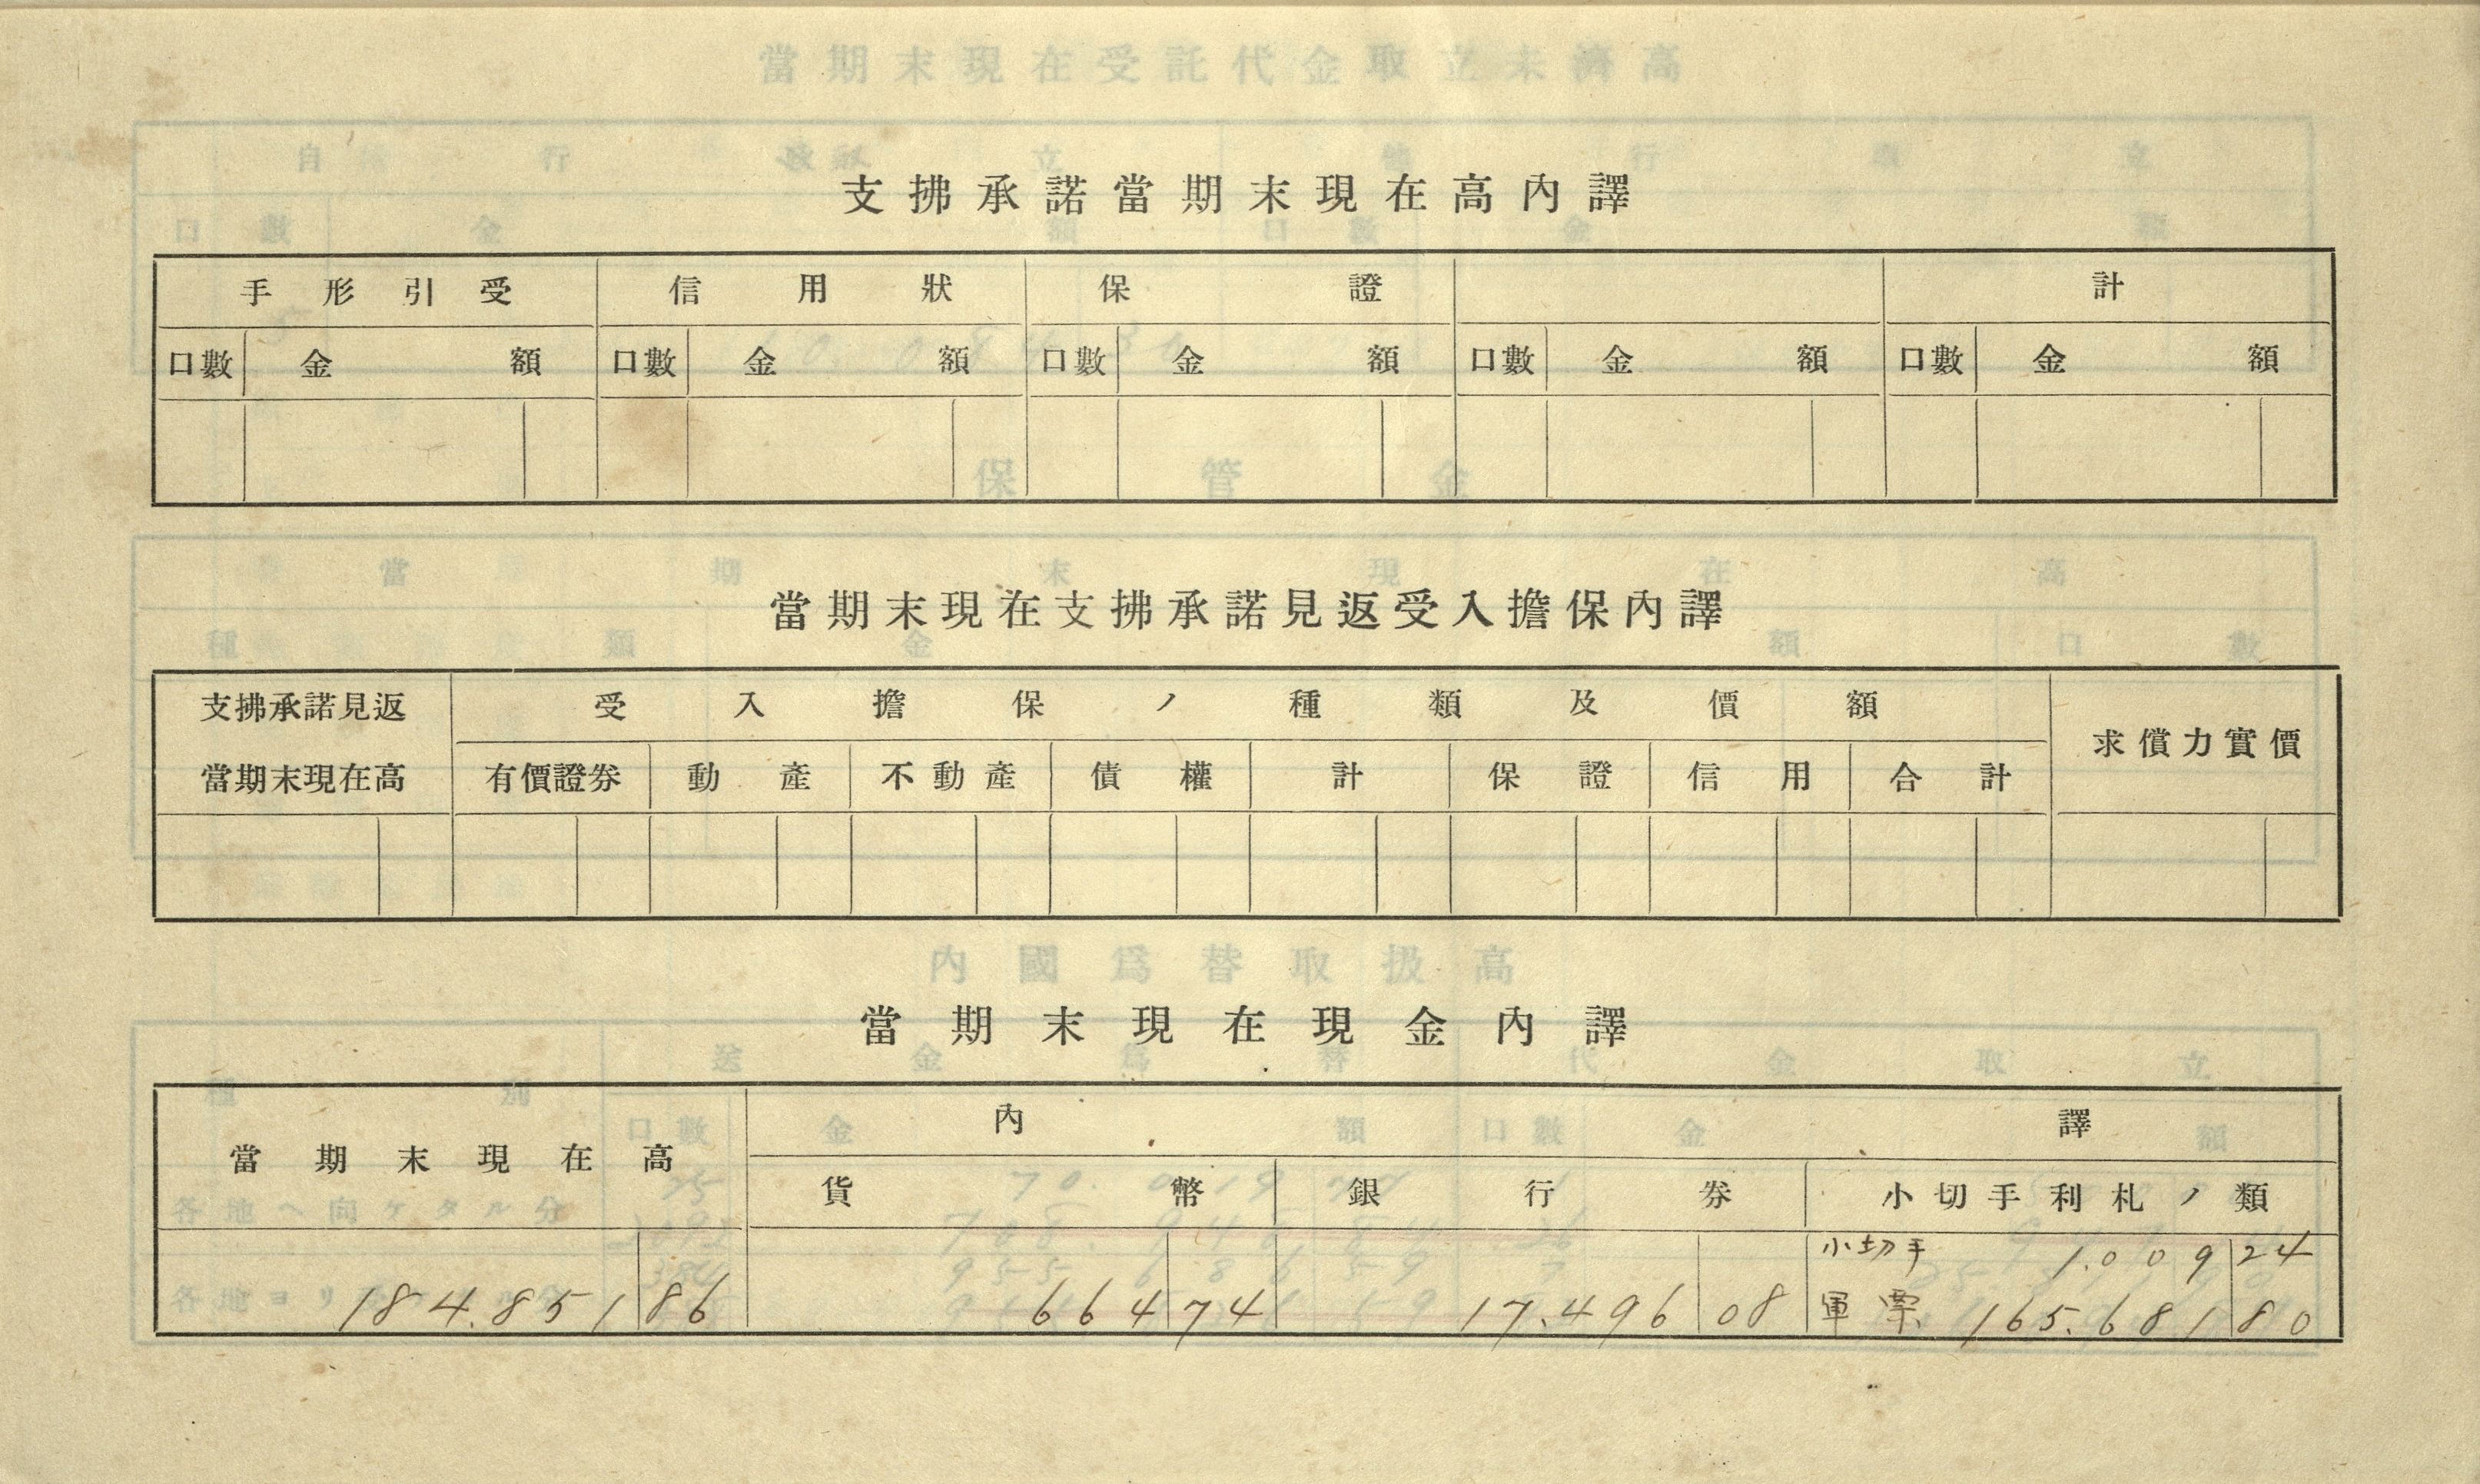 支拂承諾當期末現在高內譯
手形引受 信用狀 保證 計
口數 金額 口數 金額 口數 金額 口數 金額 口數 金額
當期末現在支拂承諾見返受入擔保內譯
支拂承諾見返當期末現在高 受入擔保ノ種類及價額 求償力實價
有價證券 動產 不動產 債權 計 保證 信用 合計
當期末現在現金內譯
當期末現在高 內譯
貨幣 銀行券 小切手利札ノ類
小切手 1.009 24
184.851 86 664 74 17.496 08 軍票 165.681 80